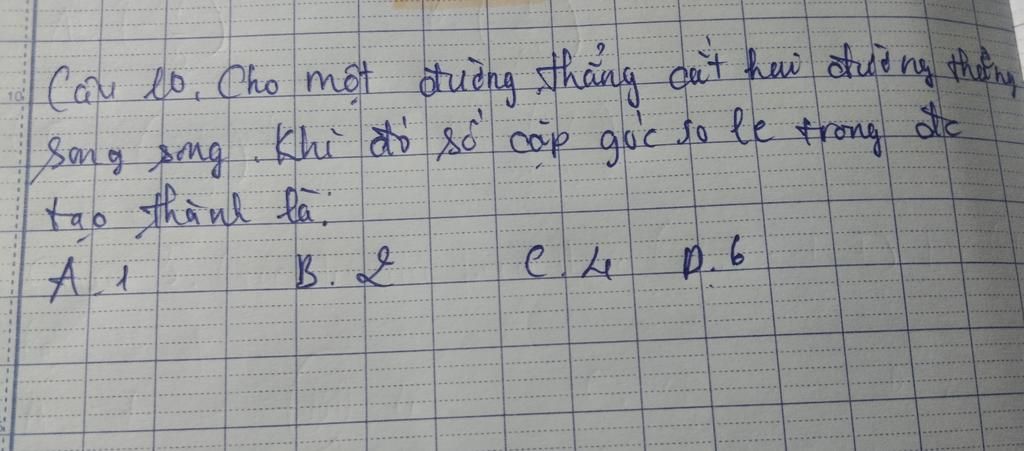 Câu 10. Cho một đường thẳng cắt hai đường thẳng
song song. Khi đó số cặp góc so le trong đc
tạo thành là:
A. 1 B. 2 C. 4 D. 6